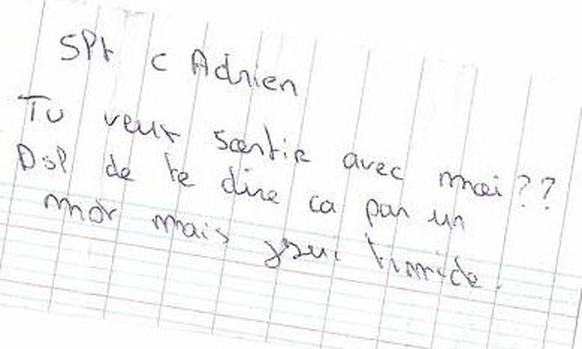 Slt c Adrien
Tu veux sortir avec moi ??
Dsl de te dire ca par un
mot mais jsui timide.